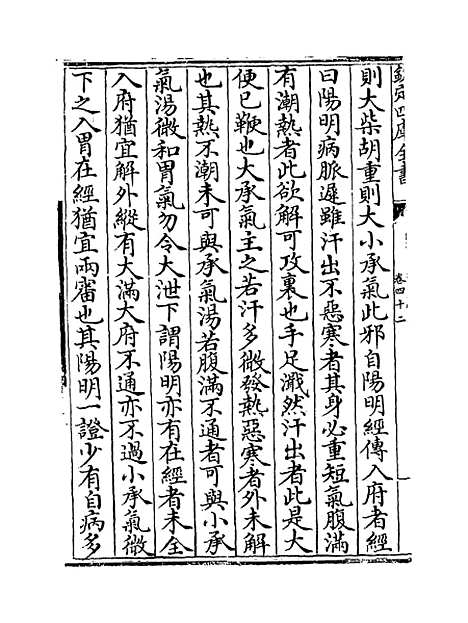 欽定四庫全書
卷四十二
則大柴胡重則大小承氣此邪自陽明經傳入府者經
曰陽明病脈遲雖汗出不惡寒者其身必重短氣腹滿
有潮熱者此欲解可攻裏也手足濈然汗出者此是大
便已鞕也大承氣主之若汗多微發熱惡寒者外未解
也其熱不潮未可與承氣湯若腹滿不通者可與小承
氣湯微和胃氣勿令大泄下謂陽明亦有在經者未全
入府猶宜解外縱有大滿大府不通亦不過小承氣微
下之入胃在經猶宜兩審也其陽明一證少有自病多